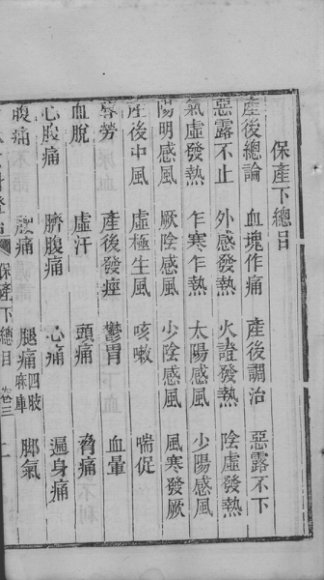 保產下總目
產後總論 血塊作痛 產後調治 惡露不下
惡露不止 外感發熱 火證發熱 陰虛發熱
氣虛發熱 乍寒乍熱 太陽感風 少陽感風
陽明感風 厥陰感風 少陰感風 風寒發厥
產後中風 虛極生風 咳嗽 喘促
蓐勞 產後發痙 鬱冒 血暈
血脫 虛汗 頭痛 脅痛
心腹痛 臍腹痛 心痛 遍身痛
腹痛 腰痛 腿痛四肢麻庳 腳氣
保產下總目 卷三 二